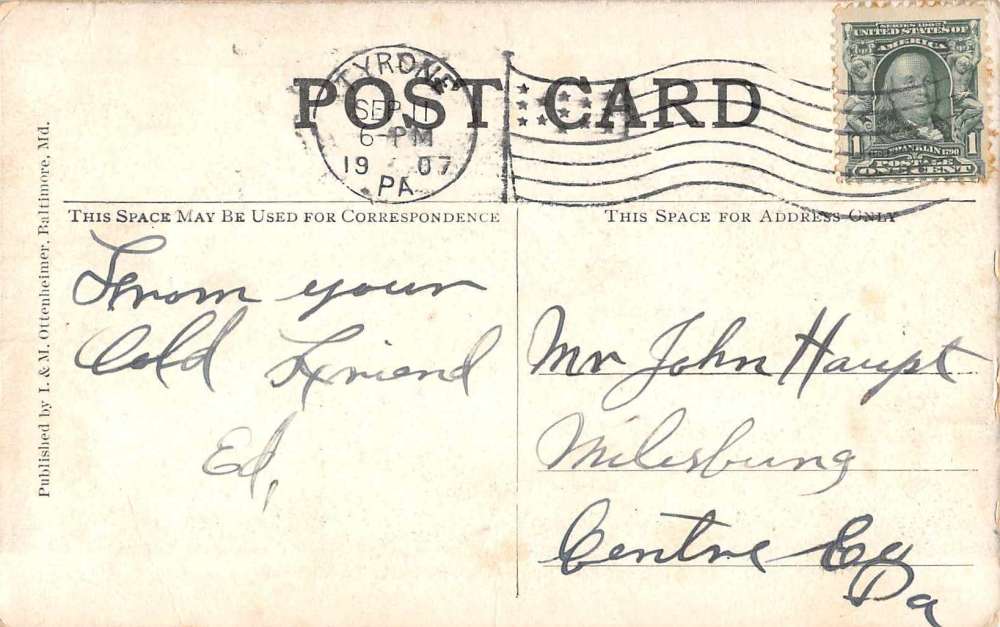 POST CARD
TYRONE
SEP 11
6-PM
1907
PA.
SERIES 1902
UNITED STATES OF
AMERICA
FRANKLIN 1790
1 POSTAGE 1
ONE CENT
THIS SPACE MAY BE USED FOR CORRESPONDENCE
THIS SPACE FOR ADDRESS ONLY
Published by I. & M. Ottenheimer, Baltimore, Md.
From your
old Friend
Ed,
Mr John Haupt
Milesburg
Centre Co
Pa